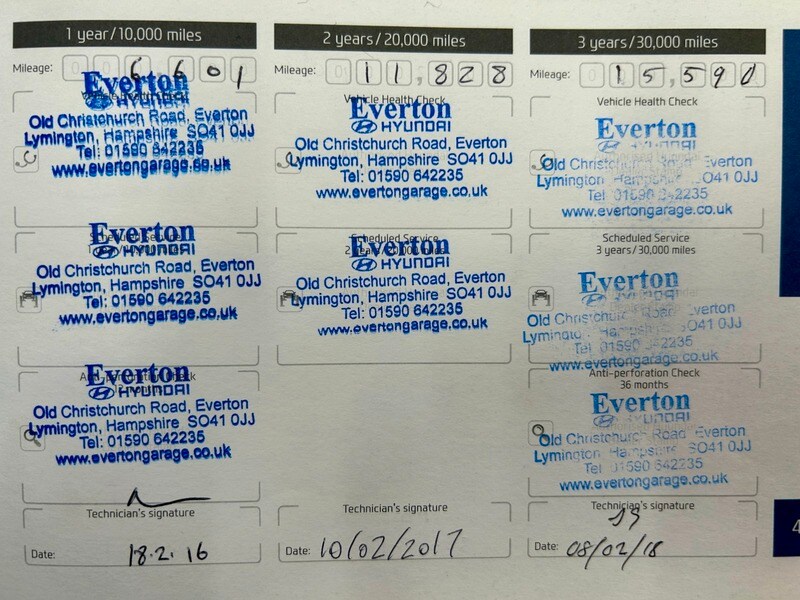 1 year/10,000 miles
Mileage: 006601
Everton
HYUNDAI
Old Christchurch Road, Everton
Lymington, Hampshire SO41 0JJ
Tel: 01590 642235
www.evertongarage.co.uk
Everton
HYUNDAI
Old Christchurch Road, Everton
Lymington, Hampshire SO41 0JJ
Tel: 01590 642235
www.evertongarage.co.uk
Everton
HYUNDAI
Old Christchurch Road, Everton
Lymington, Hampshire SO41 0JJ
Tel: 01590 642235
www.evertongarage.co.uk
Technician's signature
Date: 18.2.16
2 years/20,000 miles
Mileage: 011,828
Vehicle Health Check
Everton
HYUNDAI
Old Christchurch Road, Everton
Lymington, Hampshire SO41 0JJ
Tel: 01590 642235
www.evertongarage.co.uk
Scheduled Service
2 years/20,000 miles
Everton
HYUNDAI
Old Christchurch Road, Everton
Lymington, Hampshire SO41 0JJ
Tel: 01590 642235
www.evertongarage.co.uk
Technician's signature
Date: 10/02/2017
3 years/30,000 miles
Mileage: 015,590
Vehicle Health Check
Everton
HYUNDAI
Old Christchurch Road, Everton
Lymington, Hampshire SO41 0JJ
Tel 01590 642235
www.evertongarage.co.uk
Scheduled Service
3 years/30,000 miles
Everton
HYUNDAI
Old Christchurch Road, Everton
Lymington, Hampshire SO41 0JJ
Tel 01590 642235
www.evertongarage.co.uk
Anti-perforation Check
36 months
Everton
HYUNDAI
Old Christchurch Road, Everton
Lymington, Hampshire SO41 0JJ
Tel 01590 642235
www.evertongarage.co.uk
Technician's signature
Date: 08/02/18
4